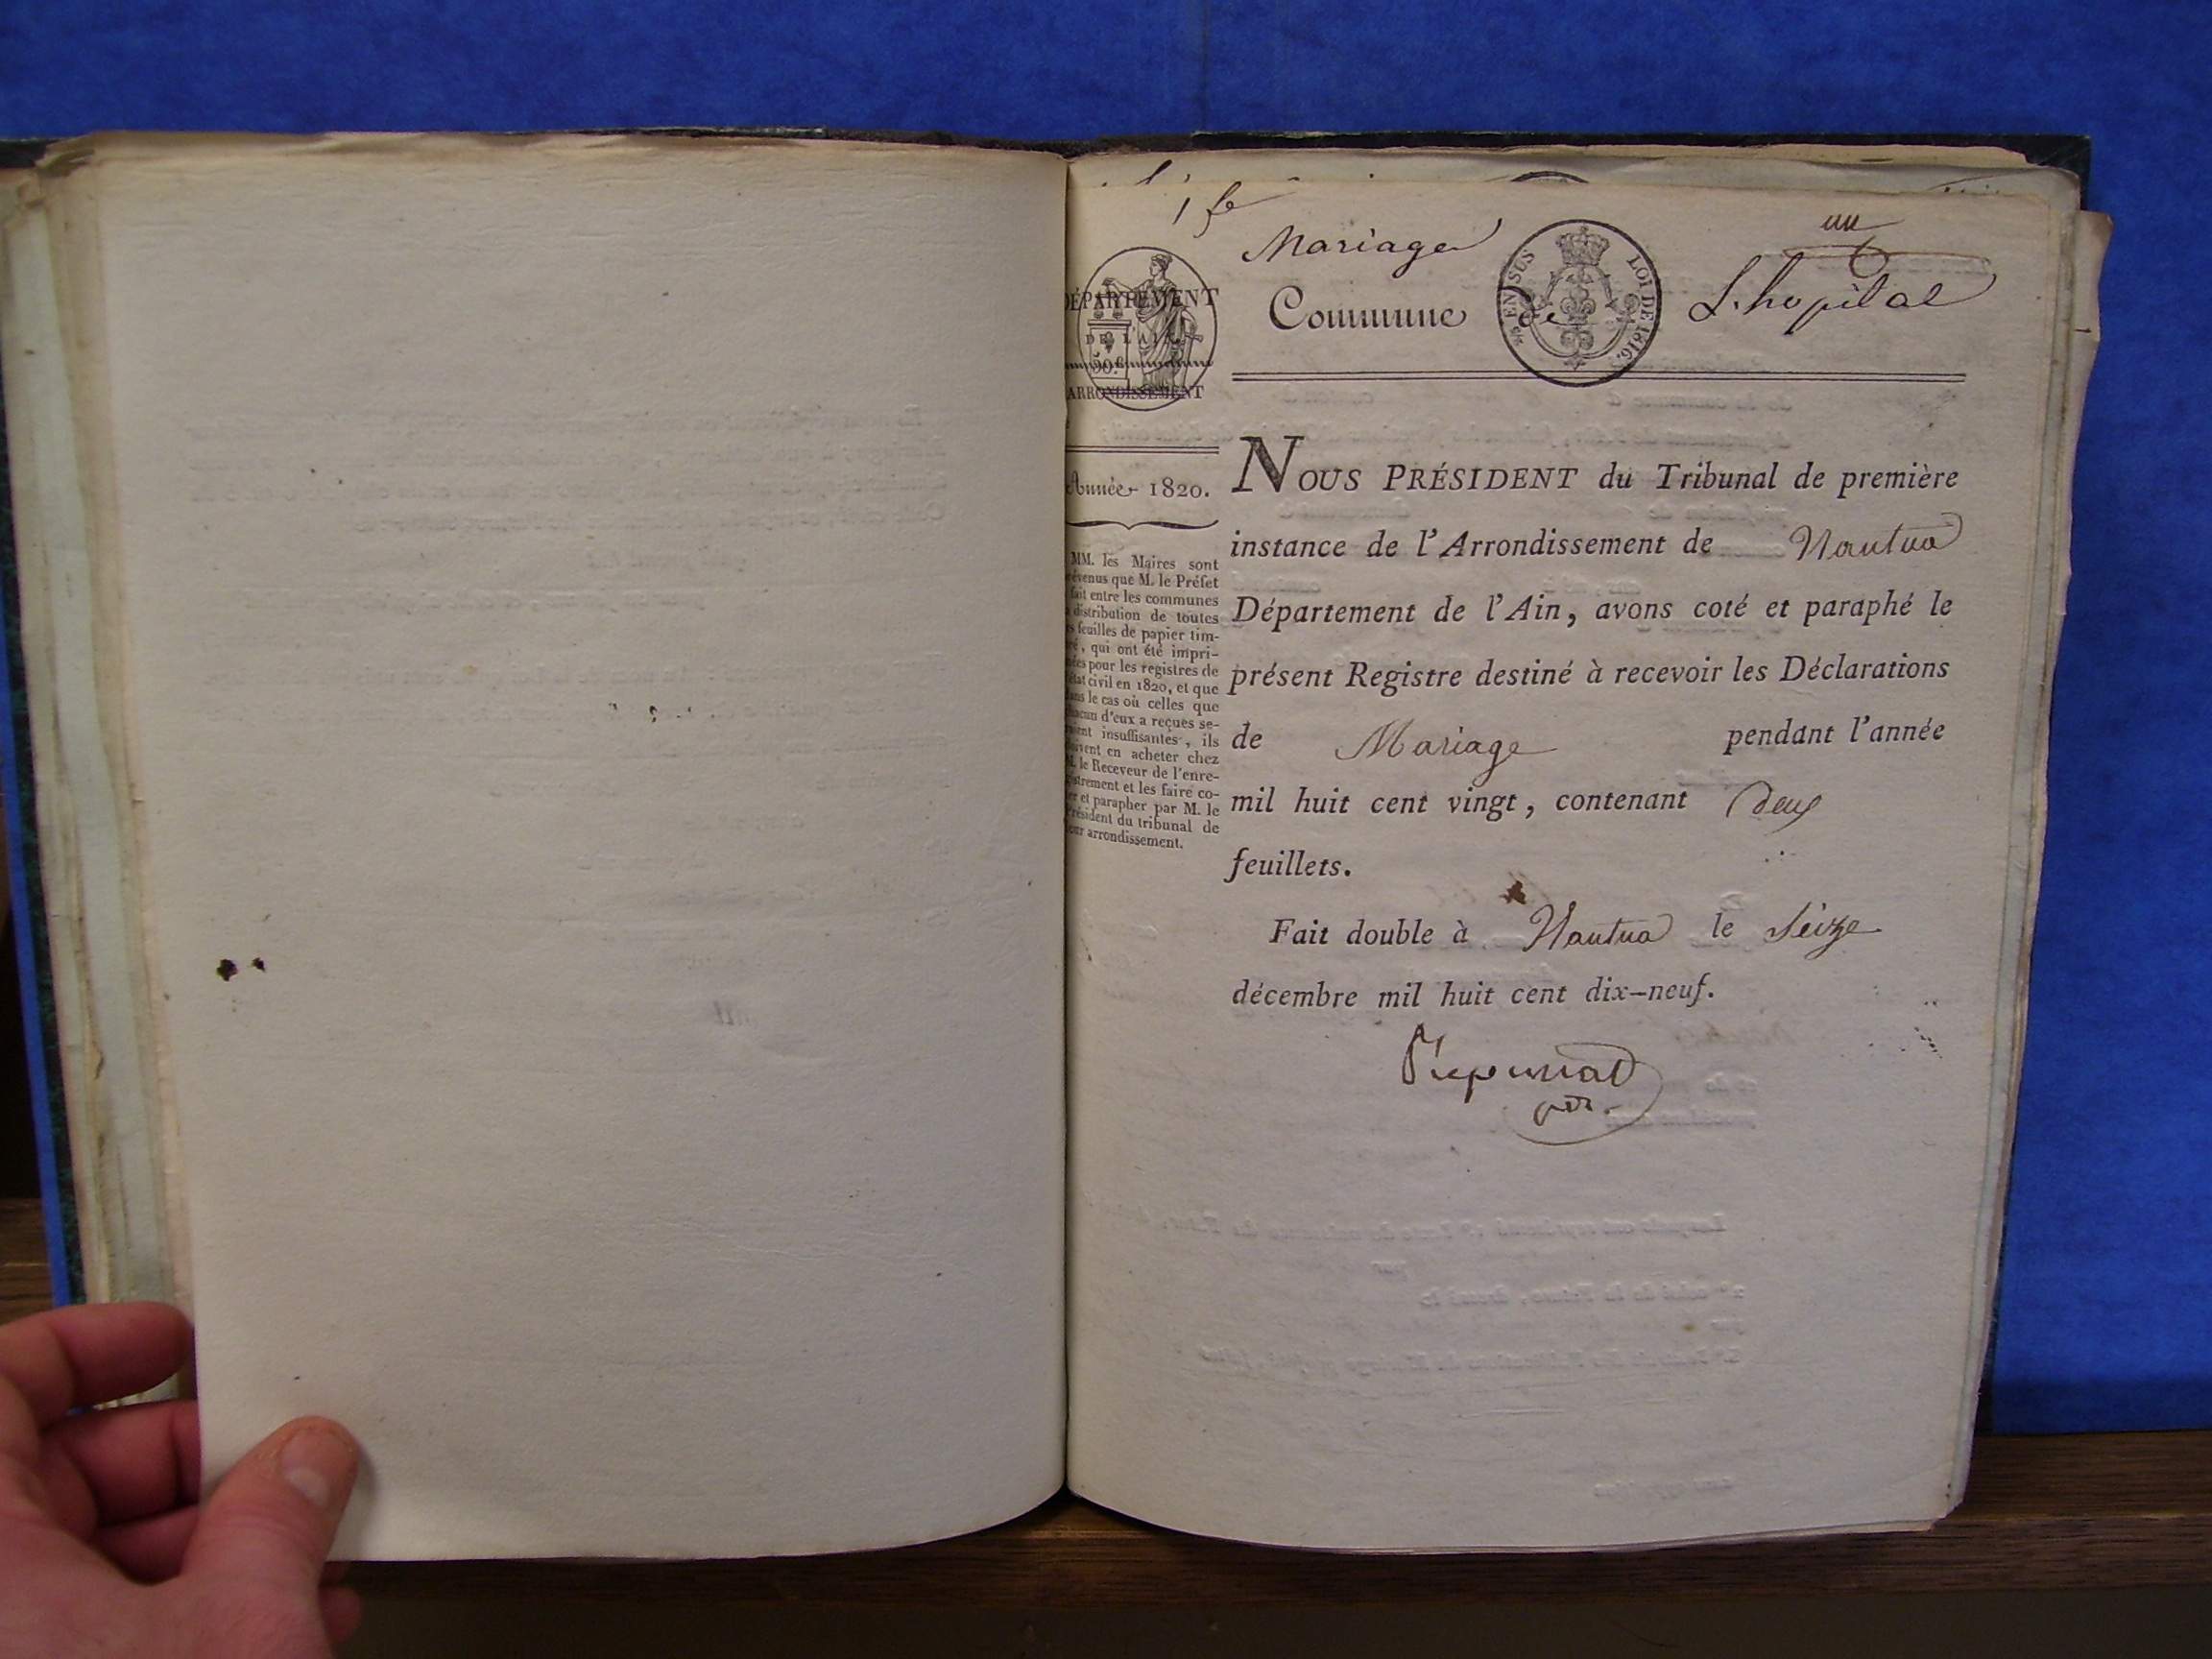 1 fe
un
Mariage
Commune de L'hopital
EN SUS LOI DE 1816.
DÉPARTEMENT
DE L'AIN.
50.c
ARRONDISSEMENT
Année 1820.
MM. les Maires sont
prévenus que M. le Préfet
fait entre les communes
la distribution de toutes
les feuilles de papier tim-
bré, qui ont été impri-
mées pour les registres de
l'état civil en 1820, et que
dans le cas où celles que
chacun d'eux a reçues se-
raient insuffisantes, ils
doivent en acheter chez
M. le Receveur de l'enre-
gistrement et les faire co-
ter et parapher par M. le
Président du tribunal de
leur arrondissement.
NOUS PRÉSIDENT du Tribunal de première
instance de l'Arrondissement de Nantua
Département de l'Ain, avons coté et paraphé le
présent Registre destiné à recevoir les Déclarations
de Mariage pendant l'année
mil huit cent vingt, contenant deux
feuillets.
Fait double à Nantua le Seize
décembre mil huit cent dix-neuf.